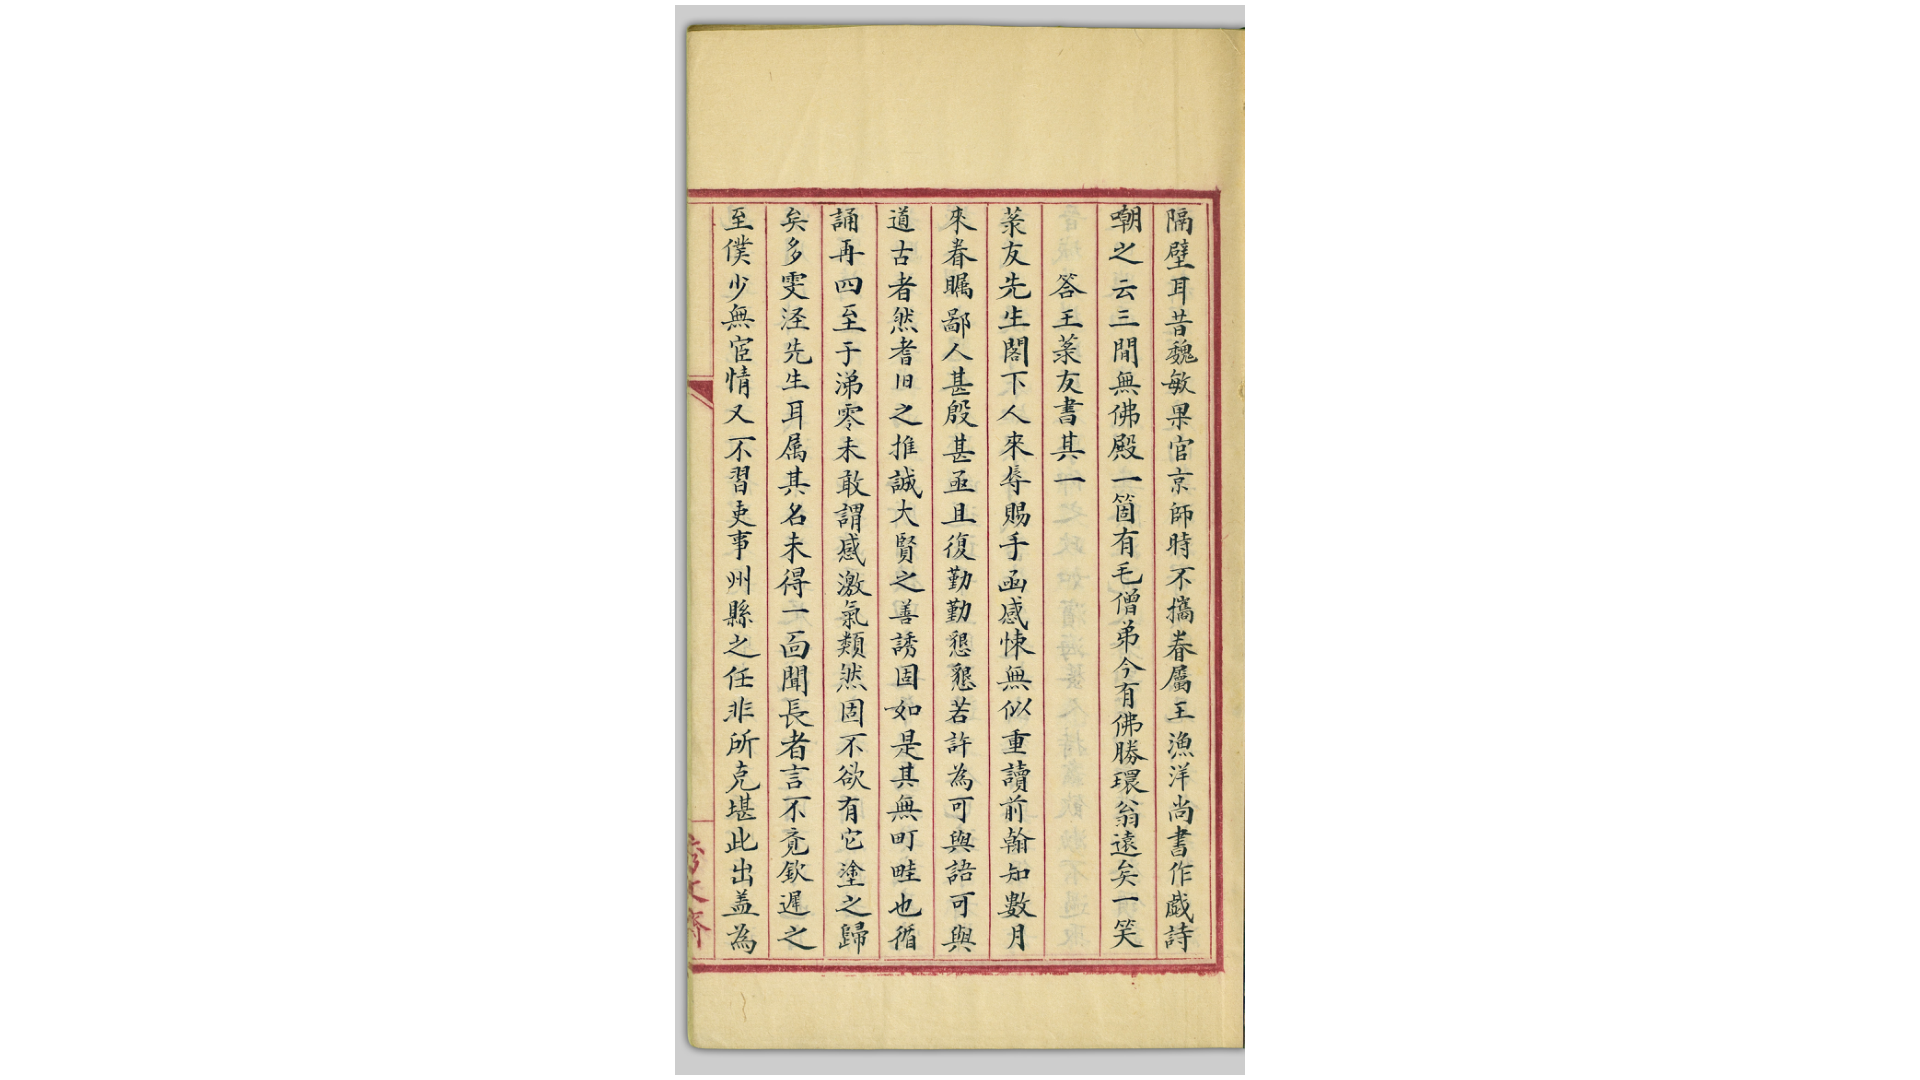 隔壁耳昔魏敏果官京師時不攜眷屬王漁洋尚書作戯詩
嘲之云三間無佛殿一箇有毛僧弟今有佛勝環翁遠矣一笑
答王菉友書其一
菉友先生閣下人來辱賜手函感悚無似重讀前翰知數月
來眷瞩鄙人甚殷甚亟且復勤勤懇懇若許為可與語可與
道古者然耆旧之推誠大賢之善誘固如是其無町畦也循
誦再四至于涕零未敢謂感激氣類然固不欲有它塗之歸
矣多雯泾先生耳属其名未得一面聞長者言不竟欽遲之
至僕少無宦情又不習吏事州縣之任非所克堪此出盖為